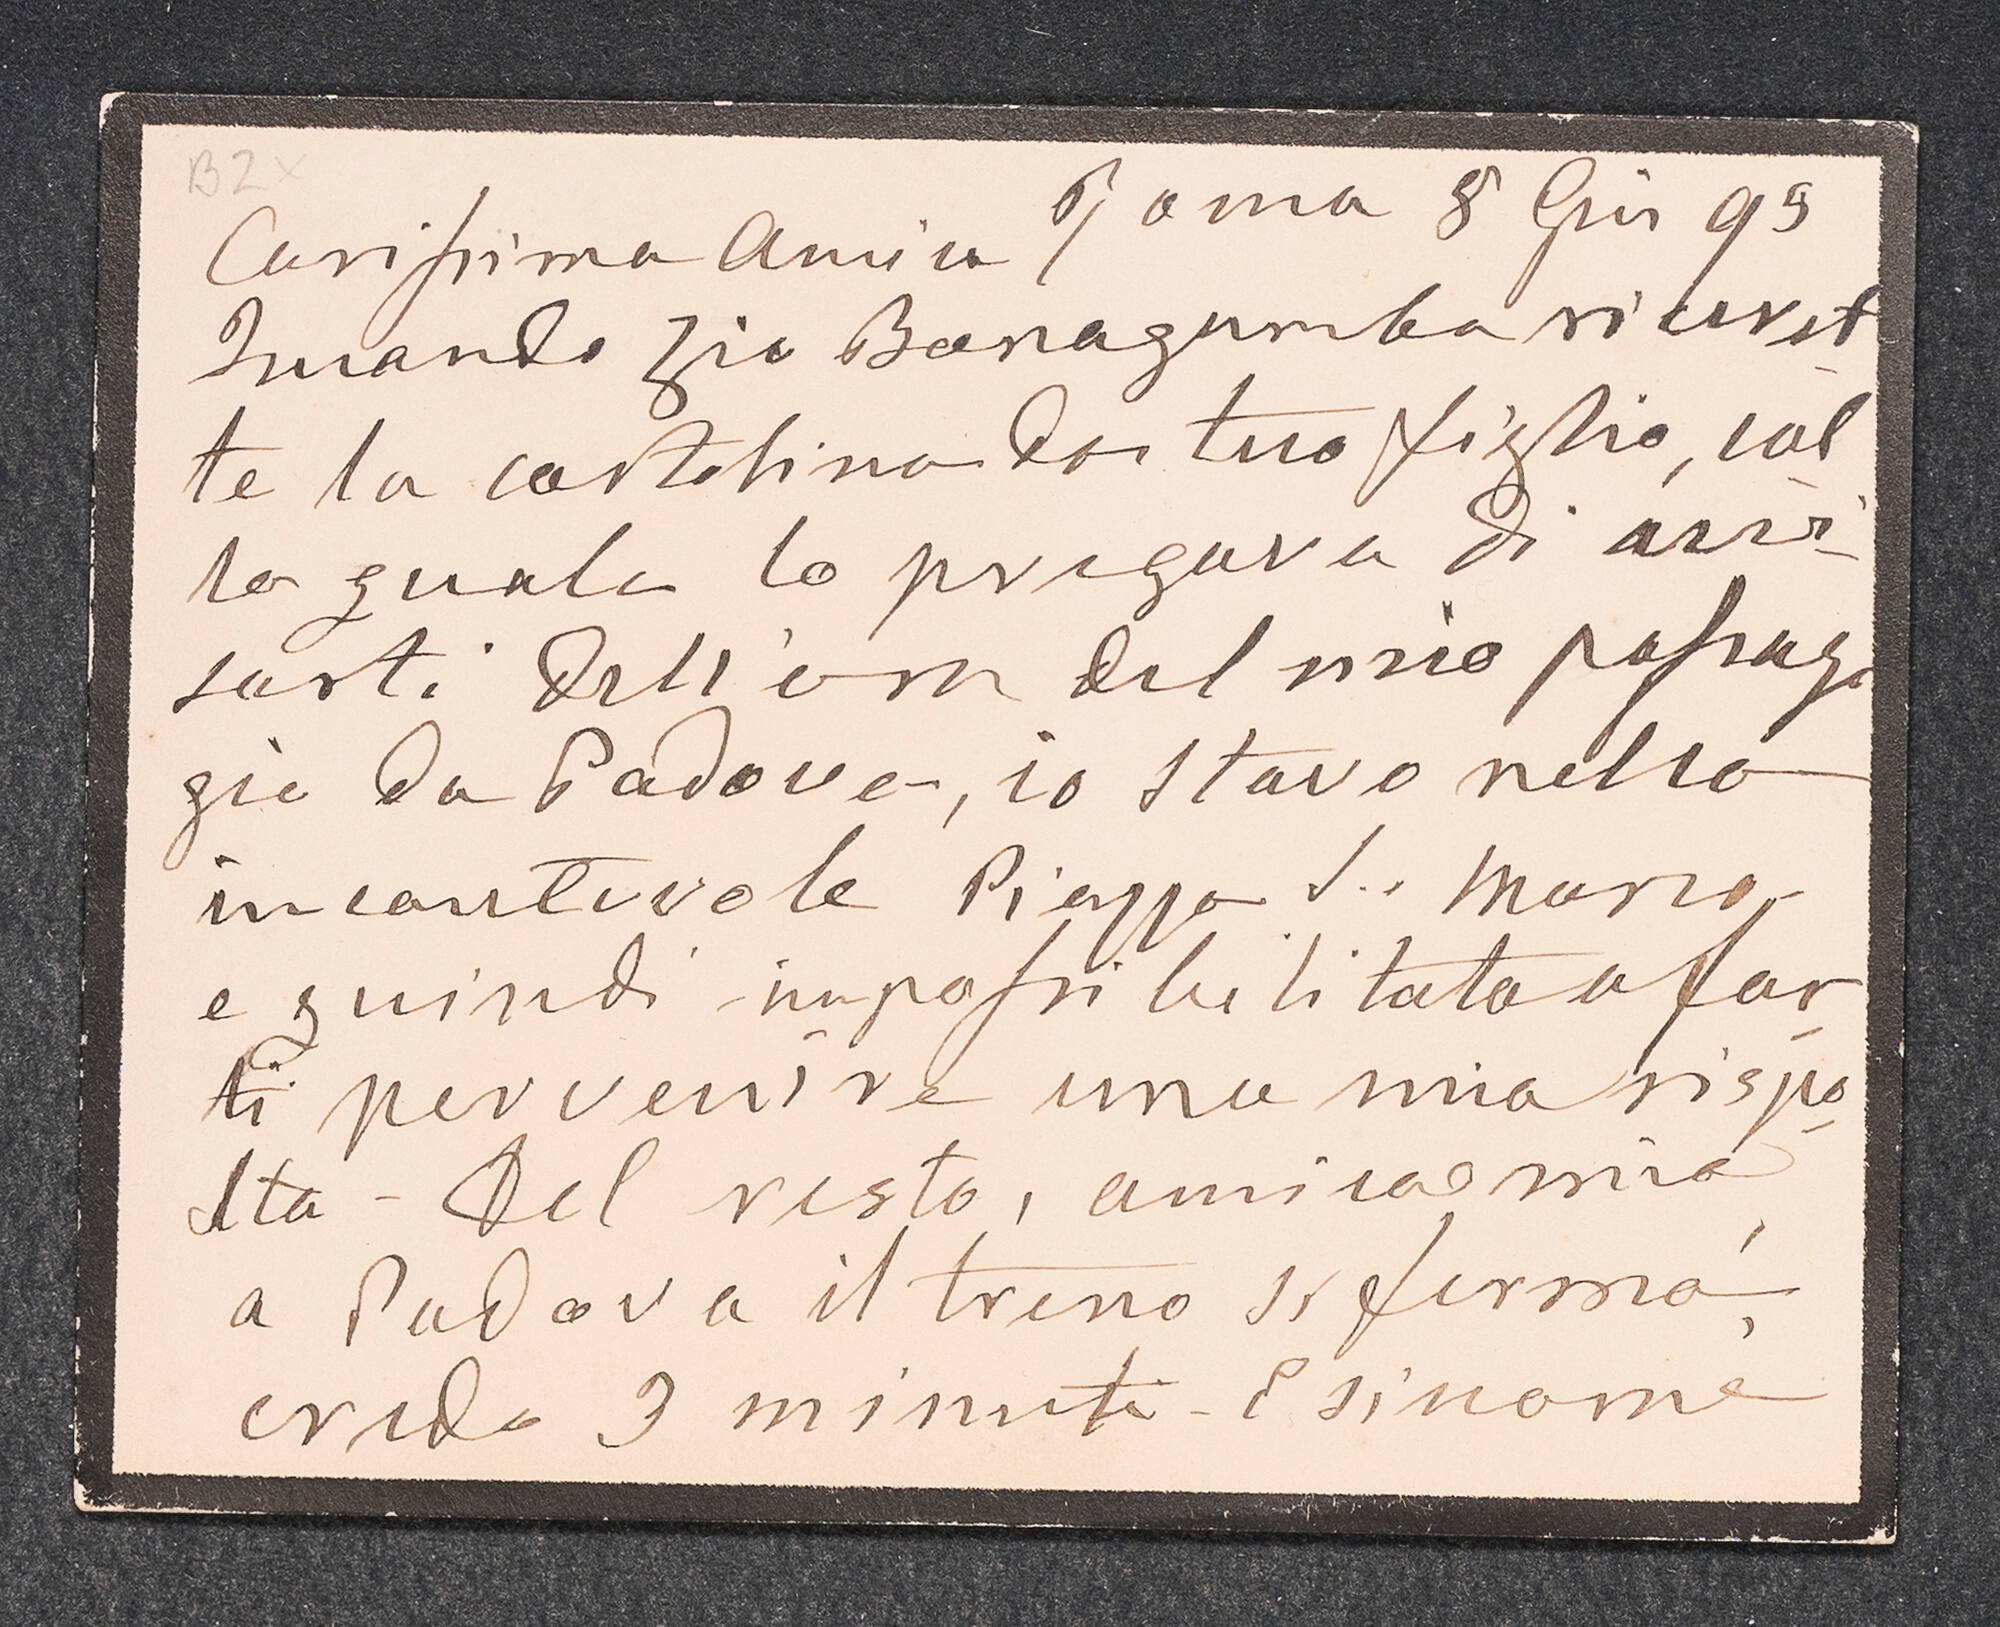 B2x
Roma 8 Giu 95
Carissima Amica
Quando Zio Bonagamba ricevet-
te la cartolina da tuo figlio, col-
la quale lo pregava di avvi-
sarti dell'ora del mio passag-
gio da Padova, io stavo nella
incantevole Piazza S. Marco
e quindi impossibilitata a far-
ti pervenire una mia rispo-
sta - Del resto, amica mia,
a Padova il treno si ferma,
credo 3 minuti - E siccome